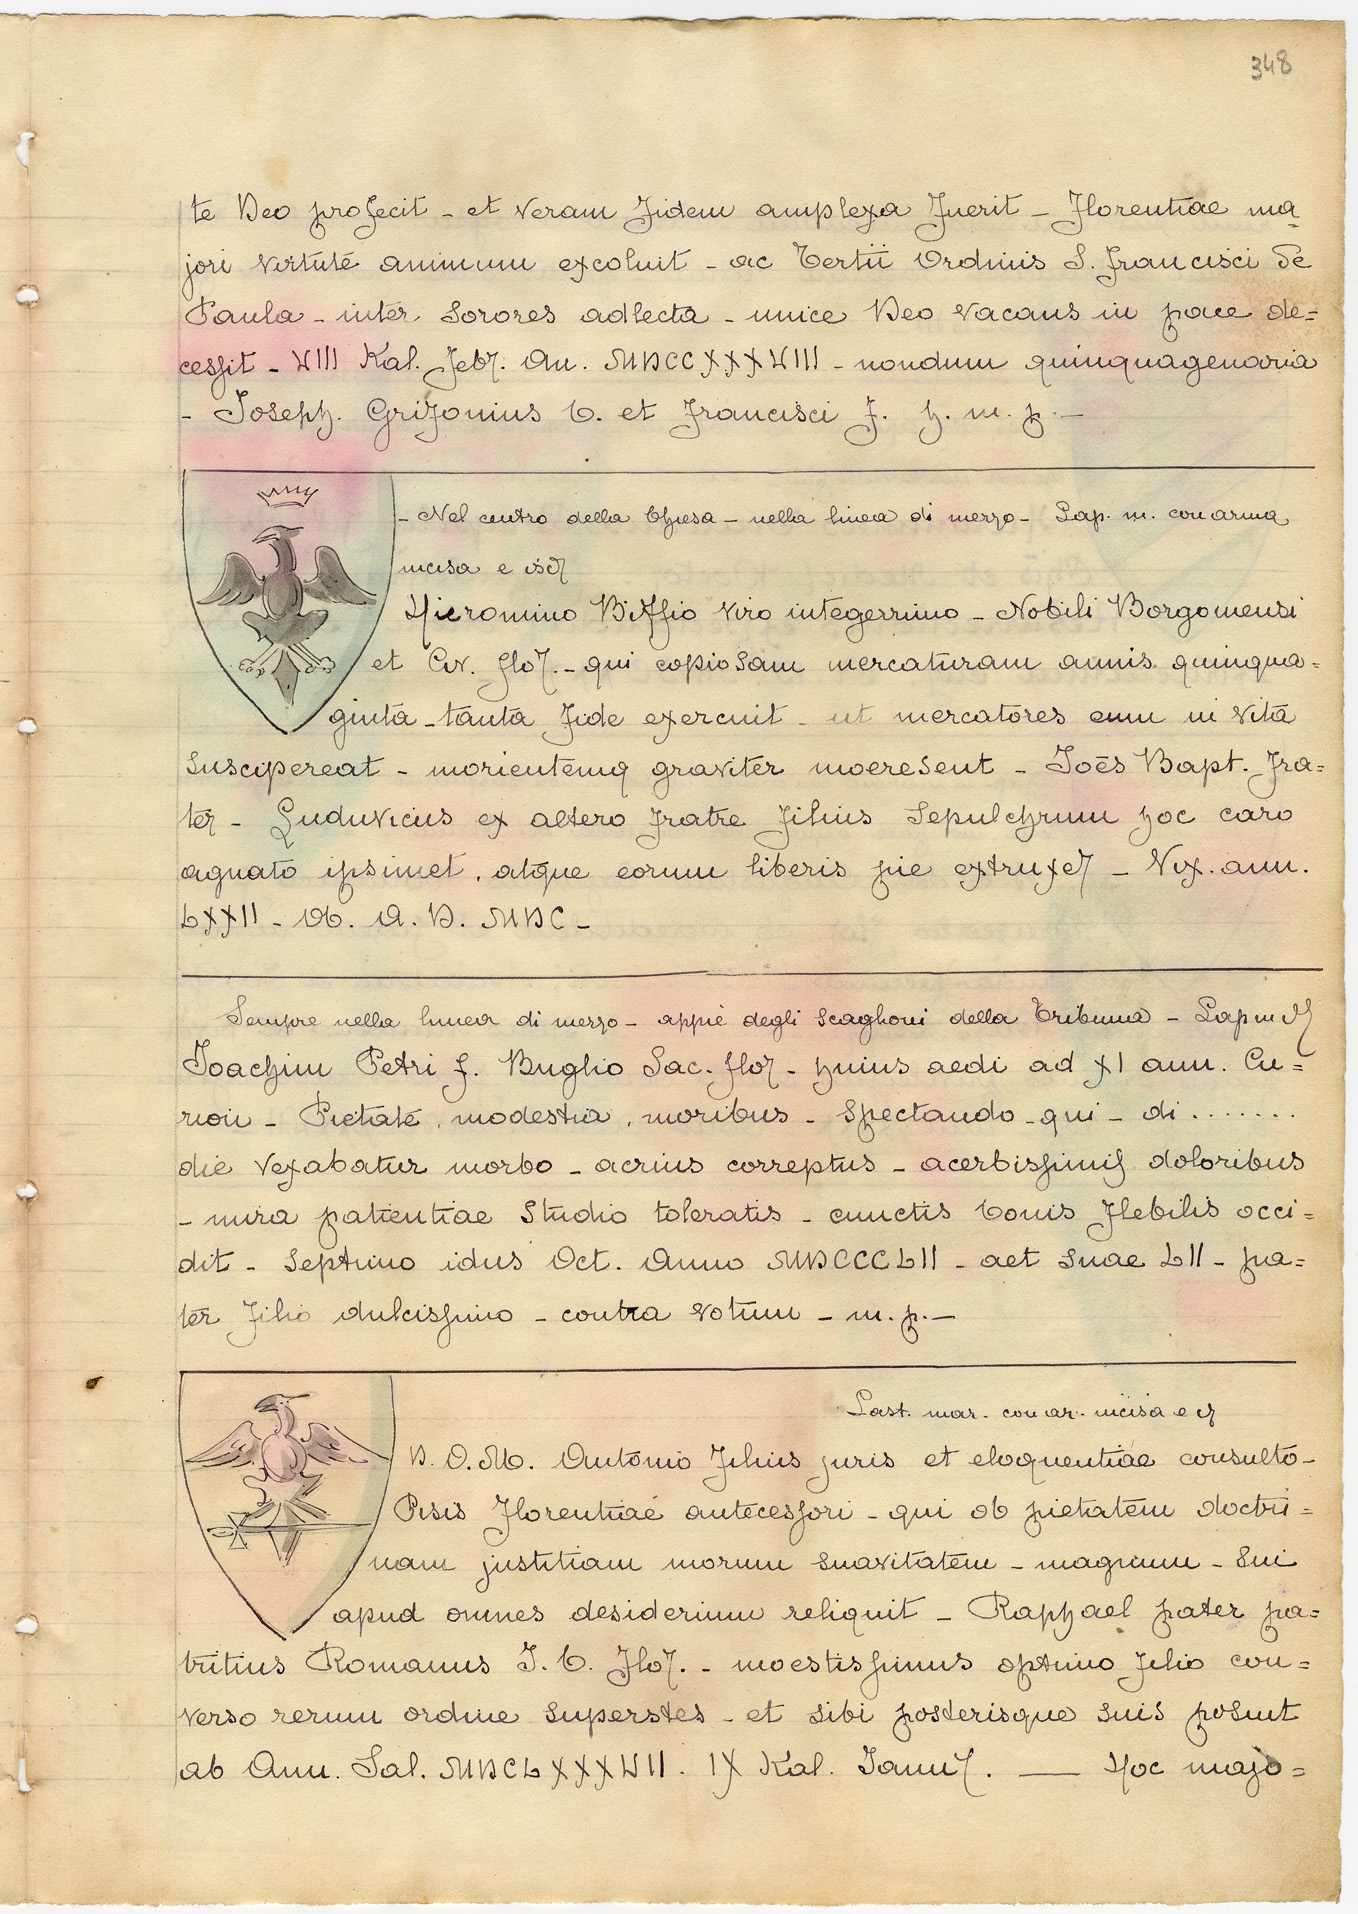 348
te Deo profecit - et veram fidem amplexa fuerit - Florentiae ma=
jori virtute animum excoluit - ac Tertii Ordinis S. Francisci de
Paula - inter Sorores adlecta - unice Deo vacans in pace de=
cessit - VIII Kal. Feb. An. MDCCXXXVIII - nondum quinquagenaria
- Joseph. Grifonius C. et Francisci F. h. m. p. -
- Nel centro della Chiesa - nella linea di mezzo - Lap. m. con arma
incisa e iscr
Hieromino Biffio viro integerrimo - Nobili Borgomensi
et Civ. flor. - qui copiosam mercaturam annis quinqua=
ginta - tanta fide exercuit - ut mercatores eum in vita
suscipereat - morientemq graviter moeresent - Joes Bapt. fra=
ter - Luduvicus ex altero fratre filius Sepulchrum hoc caro
agnato ipsimet, atque eorum liberis pie extruxer - Vix. ann.
LXXII - Ob. A. D. MDC -
Sempre nella linea di mezzo - appiè degli scaglioni della Tribuna - Lap m cr
Joachim Petri f. Buglio Sac. flor - huius aedi ad XI ann. Cu=
rion - Pietate, modestia, moribus - spectando - qui - di.......
die vexabatur morbo - acrius correptus - acerbissimis doloribus
- mira patientiae studio toleratis - cunctis bonis flebilis occi=
dit - septimo idus Oct. Anno MDCCCLII - aet suae LII - pa=
ter filio dulcissimo - contra votum - m. p. -
Last. mar. con ar. incisa e cr
D. O. M. Antonio filius juris et eloquentiae consulto -
Pisis Florentiae antecessori - qui ob pietatem doctri=
nam justitiam morum suavitatem - magnum - sui
apud omnes desiderium reliquit - Raphael pater pa=
tritius Romanus J. C. Flor. - moestissimus optimo filio con=
verso rerum ordine superstes - et sibi posterisque suis posuit
ab Ann. Sal. MDCLXXXVII. IX Kal. Januar. — Hoc majo=